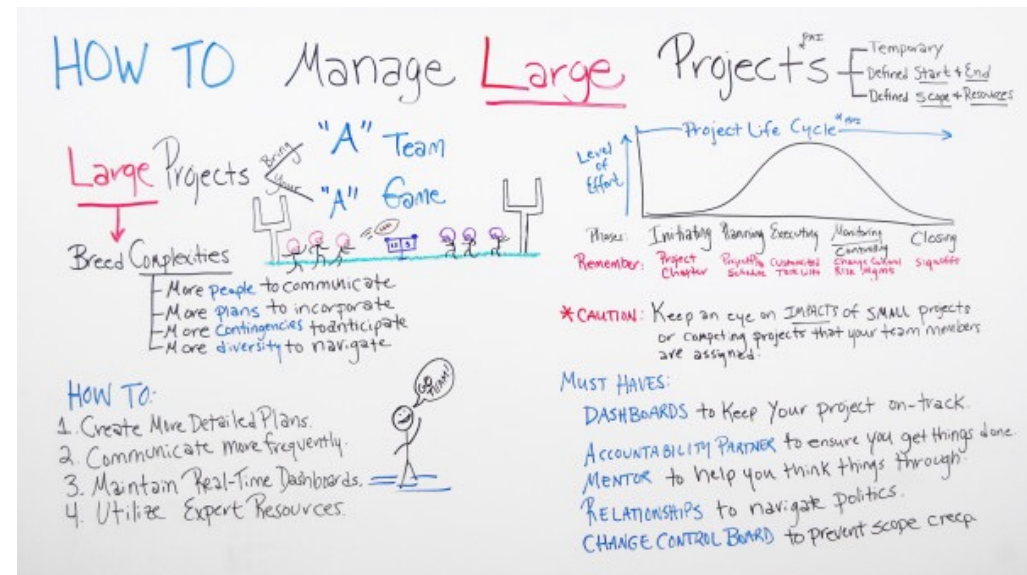 HOW TO Manage Large Projects
*PMI
Temporary
Defined Start & End
Defined Scope & Resources
Large Projects
Bring Your
"A" Team
"A" Game
Breed Complexities
More people to communicate
More plans to incorporate
More contingencies to anticipate
More diversity to navigate
HOW TO:
1. Create More Detailed Plans.
2. Communicate more frequently.
3. Maintain Real-Time Dashboards.
4. Utilize Expert Resources.
GO TEAM!
Project Life Cycle *PMI
Level of Effort
Phases: Initiating Planning Executing Monitoring Controlling Closing
Remember: Project Charter Schedule Customized Task Lists Change Control Risk Mgmt Signoffs
*CAUTION: Keep an eye on IMPACTS of SMALL projects
or competing projects that your team members
are assigned.
MUST HAVES:
DASHBOARDS to keep your project on-track.
ACCOUNTABILITY PARTNER to ensure you get things done.
MENTOR to help you think things through.
RELATIONSHIPS to navigate politics.
CHANGE CONTROL BOARD to prevent scope creep.